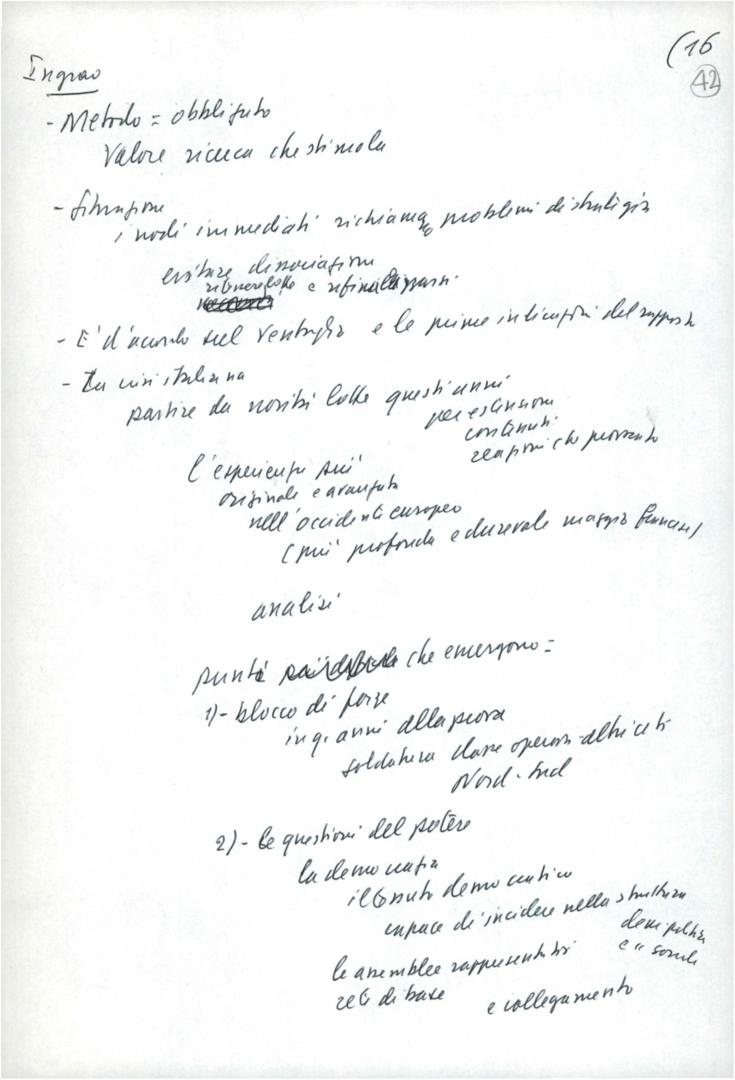 (16
42
Ingrao
- Metodo = obbligato
Valore ricerca che stimola
- Situazione
i nodi immediati richiamano problemi di strategia
evitare dissociazione
e
- E' d'accordo sul ventaglio e le prime indicazioni del rapporto
- La crisi italiana
partire da novità lotte questi anni
per estensione
continuità
reazioni che provocato
l'esperienza più
originale e avanzata
nell'occidente europeo
(più profonda e durevole maggio francese)
analisi
punti che emergono =
1)- blocco di forze
in q. anni alla prova
saldatura classe operaia - altri ceti
Nord - Sud
2)- le questioni del potere
la democrazia
il tessuto democratico
capace di incidere nella struttura
e sociale
le assemblee rappresentative
reti di base
e collegamento